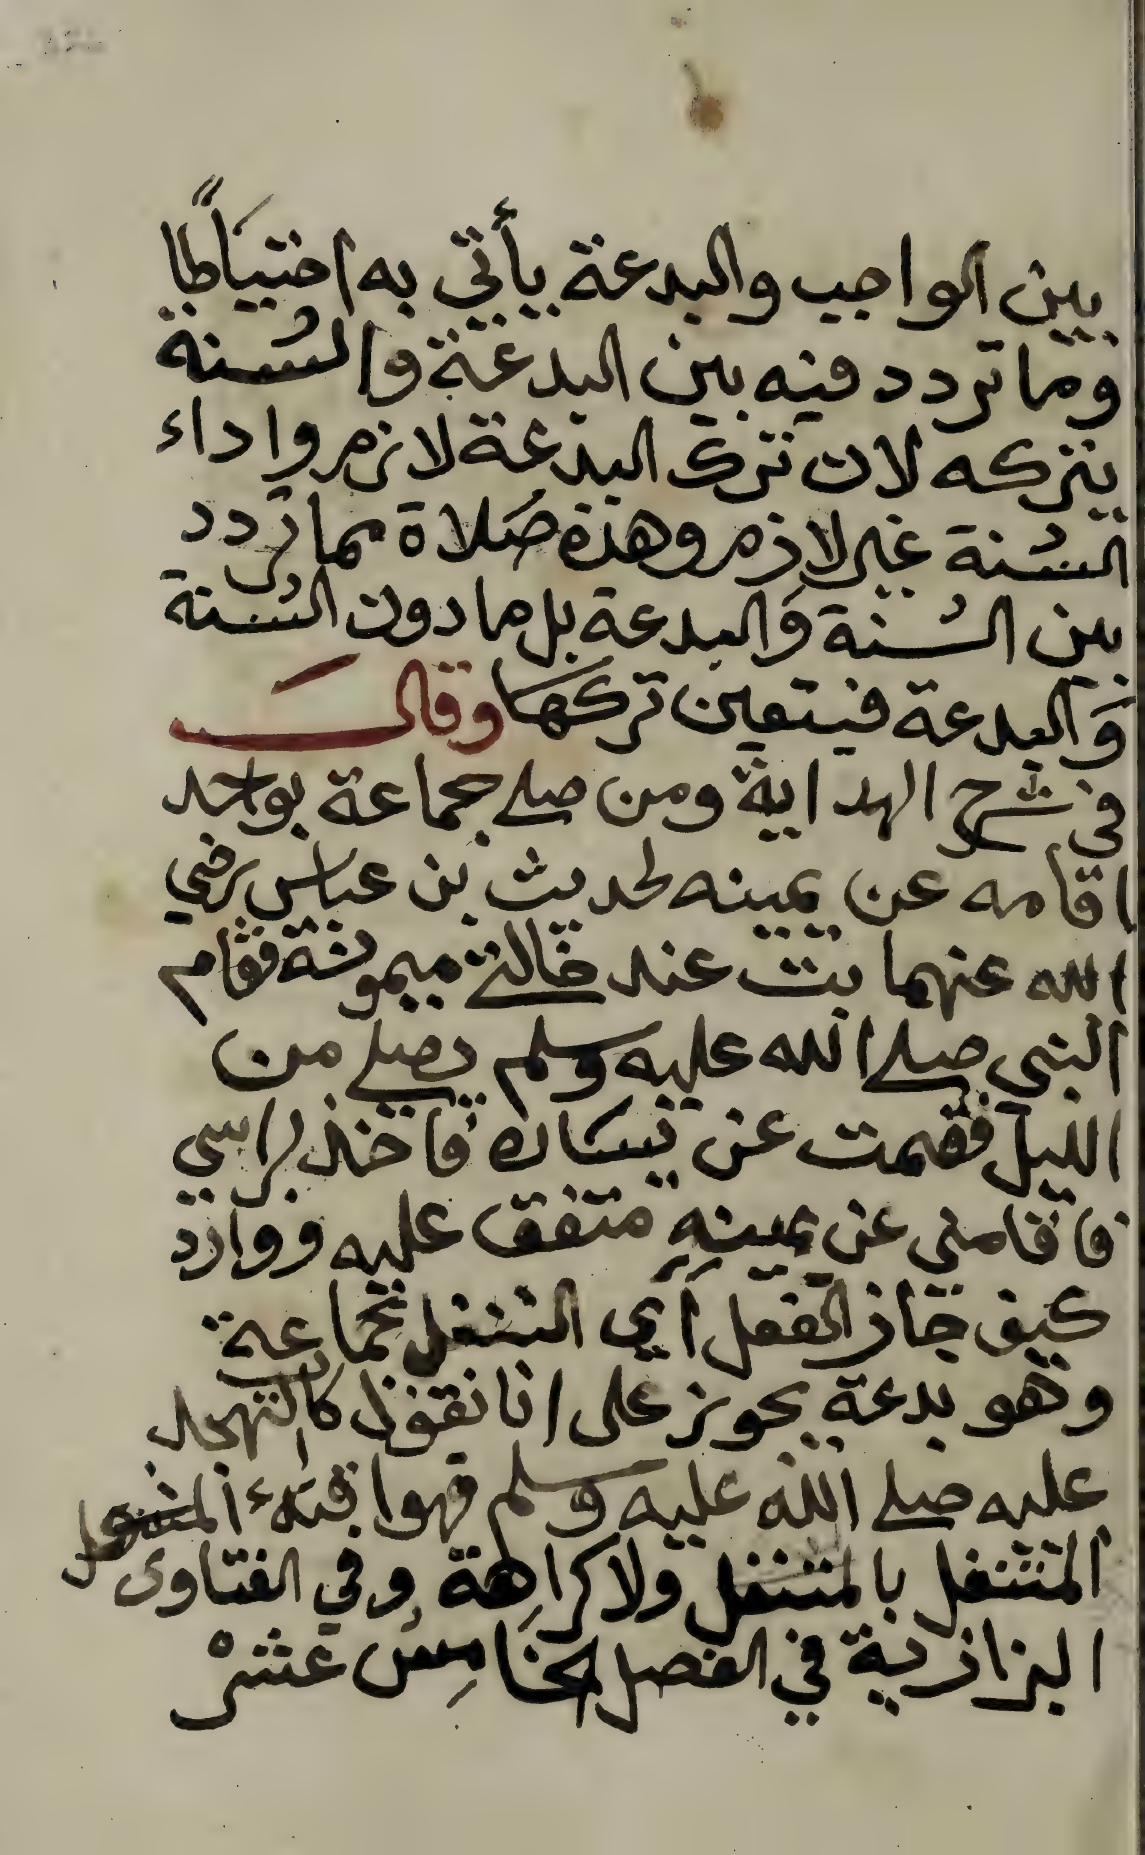 بين الواجب والبدعة يأتي به احتياطًا
وما تردد فيه بين البدعة والسُنة
يتركه لان ترك البدعة لازم واداء
السُنة غير لازم وهذه صَلاة مما تردد
بين السُنة وَالبدعة بل ما دون السُنة
وَالبدعة فيتعين تركها وقالَ
في شرح الهداية ومن صلى جماعة بواحد
اقامه عن يمينه لحديث بن عباس رضي
الله عنهما بت عند خالتي ميمونة فقام
النبي صلى الله عليه وسلم يصلي من
الليل فقمت عن يسَاره فاخذ براسي
فاقامني عن يمينهِ متفق عليه ووارد
كيف جَاز الفعل أي التنفل بجماعة
وهو بدعة يجوز على انا نقول كان التهجد
عليه صلى الله عليه وسلم فهو اقتداء
المتنفل بالمتنفل ولا كراهة وفي الفتاوى
البزازية في الفصل الخامِسُ عَشرْ